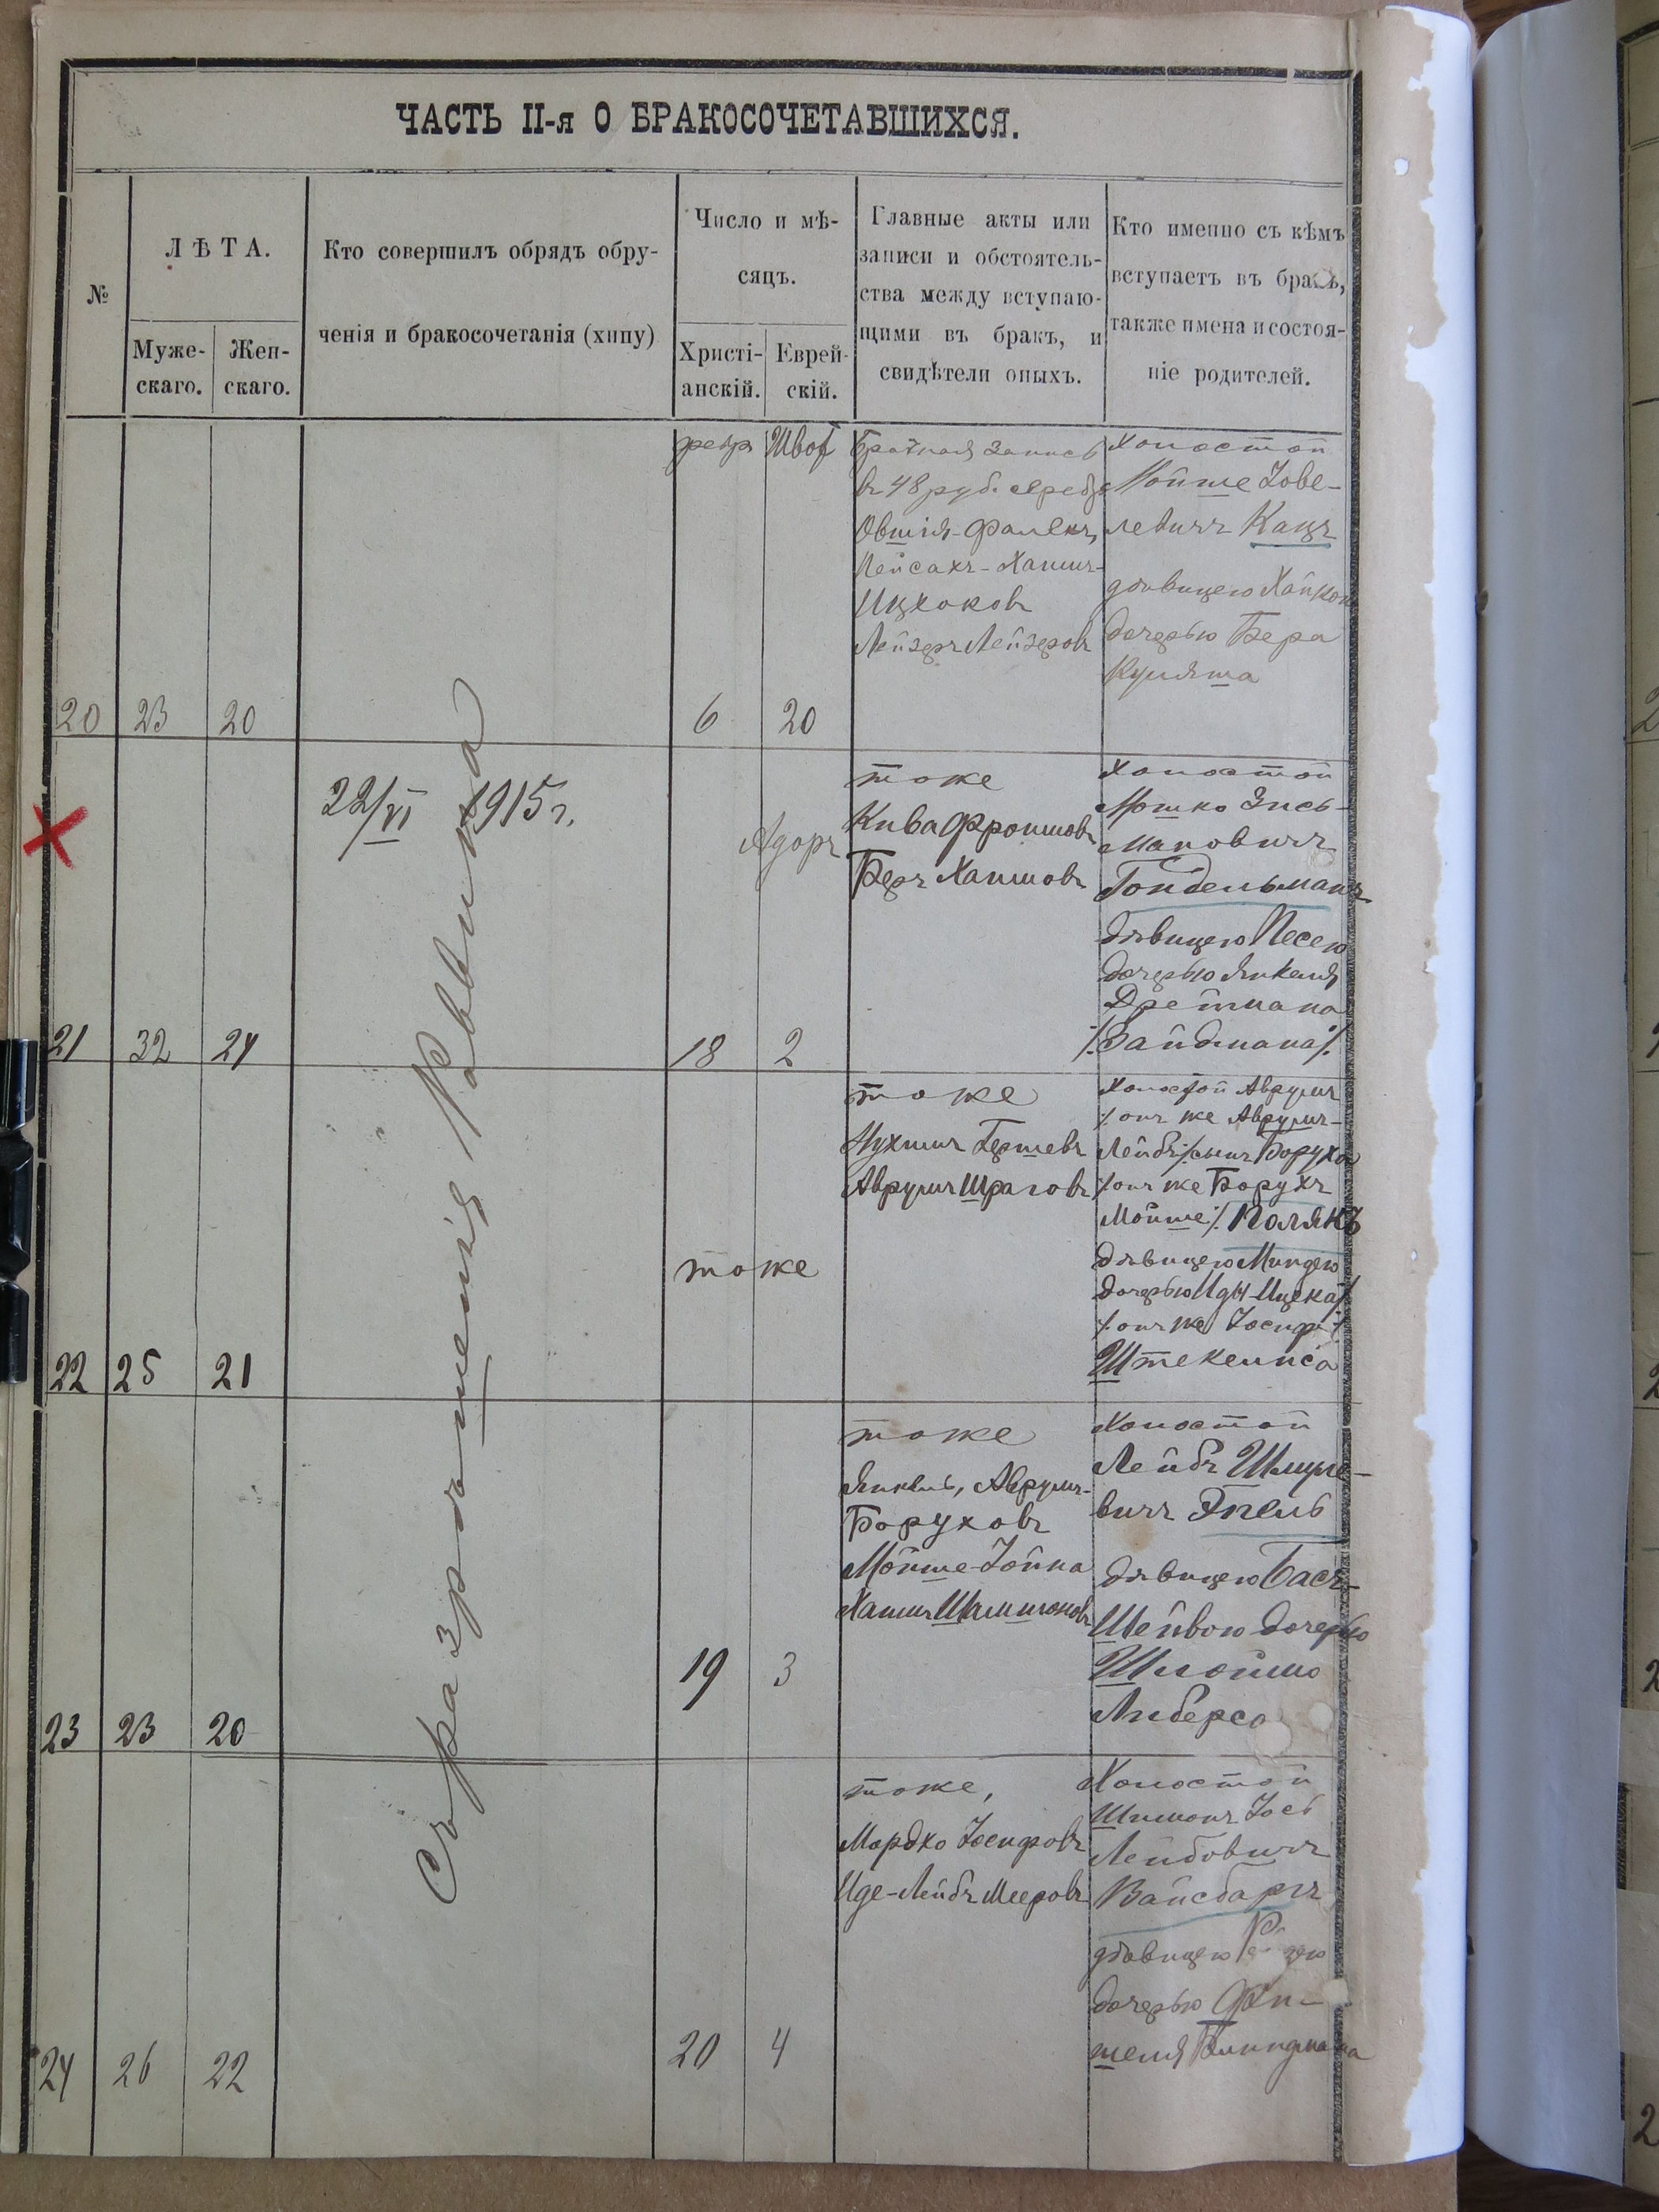 ЧАСТЬ II-я О БРАКОСОЧЕТАВШИХСЯ.
№
ЛѢТА.
Муже-
скаго.
Жен-
скаго.
Кто совершилъ обрядъ обру-
ченія и бракосочетанія (хипу)
Число и мѣ-
сяцъ.
Христі-
анскій.
Еврей-
скій.
Главные акты или
записи и обстоятель-
ства между вступаю-
щими въ бракъ, и
свидѣтели оныхъ.
Кто именно съ кѣмъ
вступаетъ въ бракъ,
также имена и состоя-
ніе родителей.
Съ разрѣшенія Раввина
20
23
20
февр
6
Швот
20
Брачная запись
въ 48 руб. серебр
Овшія-Фалекъ,
Пейсахъ-Хаимъ-
Ицхоковъ
Лейзеръ Лейзеровъ
Холостой
Мойше Іове-
левичъ Кацъ
дѣвицею Хайкою
дочерью Бера
Куляша
21
32
24
22/VI 1915 г.
18
Адоръ
2
тоже
Кива Фроимовъ
Беръ Хаимовъ
Холостой
Мошко Зись-
мановичъ
Гойдельманъ
дѣвицею Песею
дочерью Янкеля
Дреймана
/.Зайдмана/.
22
25
21
тоже
тоже
Нухимъ Гершевъ
Аврумъ Шраговъ
Холостой Аврумъ
/.онъ же Аврумъ-
Лейбъ/.сынъ Боруха
/.онъ же Борухъ
Мойше/. Полякъ
дѣвицею Миндею
дочерью Иды-Ицека/
/.онъ же Іосифъ/
Штекелиса
23
23
20
19
3
тоже
Янкель, Аврумъ-
Боруховъ
Мойше-Іойна
Хаимъ Шлимоновъ
Холостой
Лейбъ Шмуле-
вичъ Эпель
дѣвицею Бася-
Шейвою дочерью
Шлоймо
Либерса
24
26
22
20
4
тоже,
Мордко Іосифовъ
Иде-Лейбъ Мееровъ
Холостой
Шимонъ Іось
Лейбовичъ
Вайсбаргъ
дѣвицею
дочерью Фи-
шеля Блиндмана